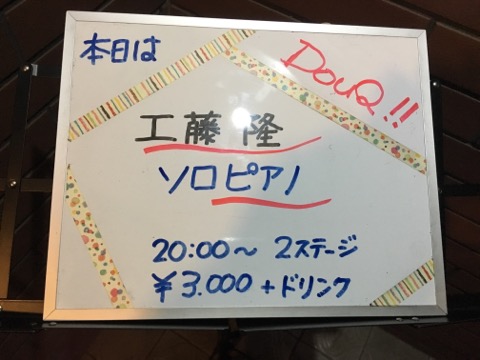 本日は
DouQ!!
工藤 隆
ソロピアノ
20:00〜 2ステージ
¥3.000 +ドリンク